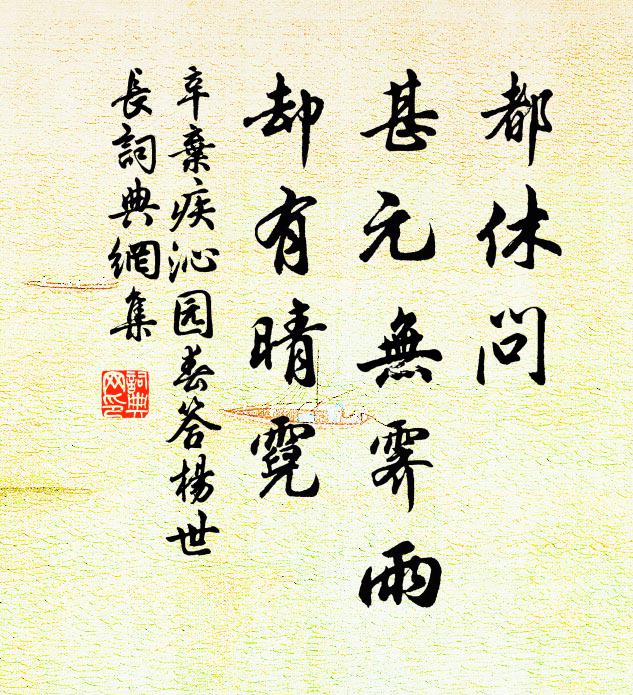 都休问
甚元無霁雨
却有晴霓
辛棄疾沁园春答楊世
長詞典網集
詞典网印